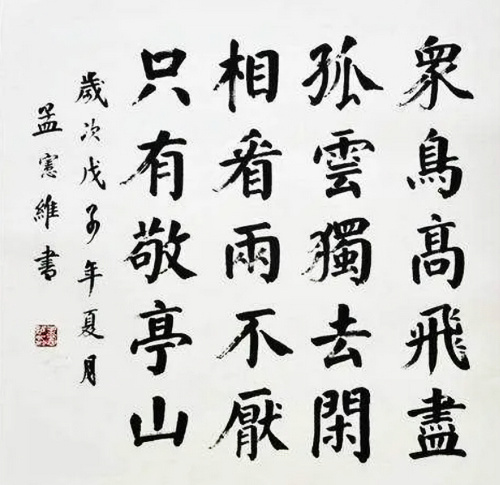 衆鳥髙飛盡
孤雲獨去閑
相看兩不厭
只有敬亭山
歲次戊子年夏月
孟憲維書